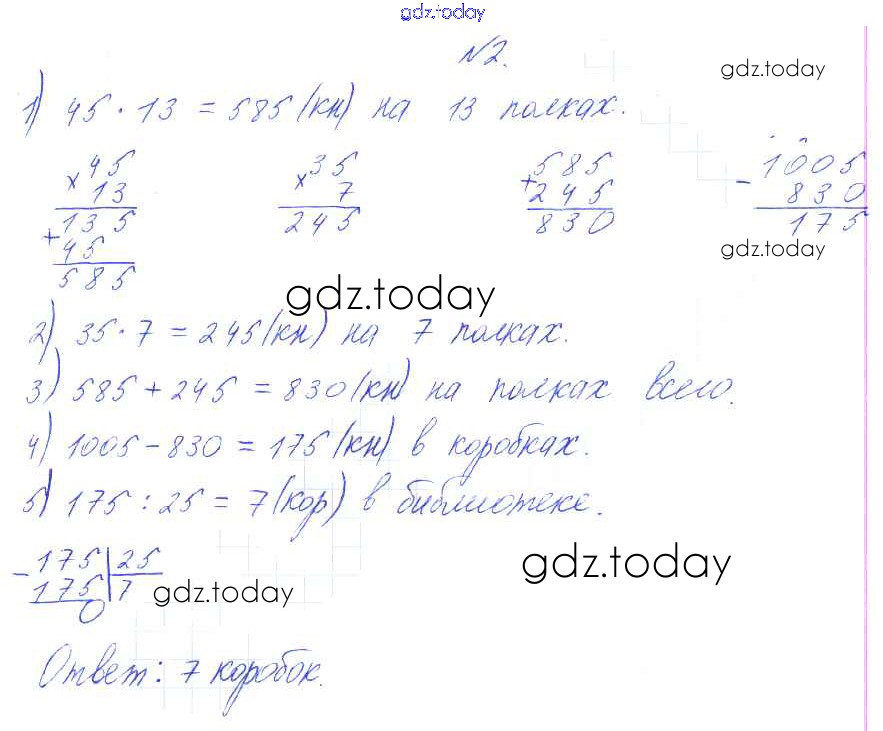 gdz.today
№2.
gdz.today
1) 45 · 13 = 585 (кн) на 13 полках.
× 45
13
135
+ 45
585
× 35
7
245
+ 585
245
830
- 1005
830
175
gdz.today
gdz.today
2) 35 · 7 = 245 (кн) на 7 полках.
3) 585 + 245 = 830 (кн) на полках всего.
4) 1005 - 830 = 175 (кн) в коробках.
5) 175 : 25 = 7 (кор) в библиотеке.
- 175 | 25
175 | 7
0
gdz.today
gdz.today
Ответ: 7 коробок.